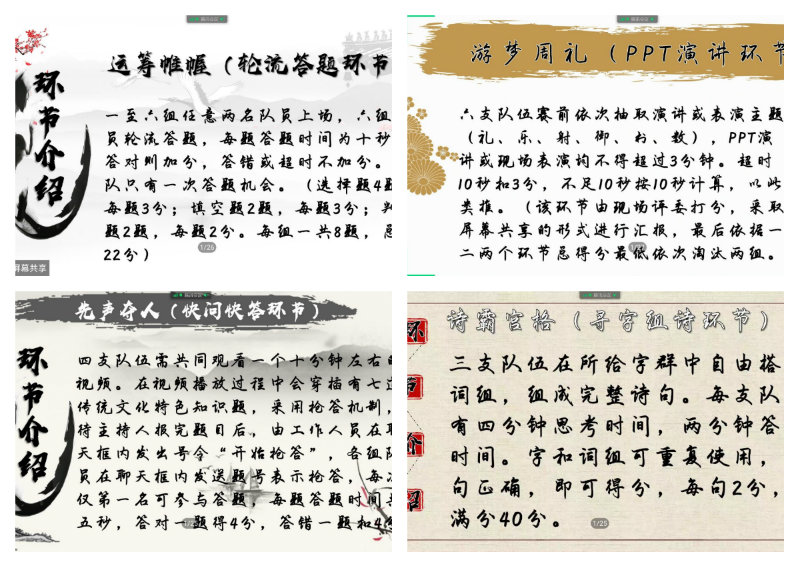 腾讯会议
环节介绍
运筹帷幄（轮流答题环节
一至六组任意两名队员上场，六组
员轮流答题，每题答题时间为十秒
答对则加分，答错或超时不加分。
队只有一次答题机会。（选择题4题
每题3分；填空题2题，每题3分；判
题2题，每题2分。每组一共8题，总
22分）
1/26
屏幕共享
腾讯会议
游梦周礼（PPT演讲环节
六支队伍赛前依次抽取演讲或表演主题
（礼、乐、射、御、书、数），PPT演
讲或现场表演均不得超过3分钟。超时
10秒扣3分，不足10秒按10秒计算，以此
类推。（该环节由现场评委打分，采取
屏幕共享的形式进行汇报，最后依据一
二两个环节总得分最低依次淘汰两组。
腾讯会议
先声夺人（快问快答环节）
环节介绍
四支队伍需共同观看一个十分钟左右的
视频。在视频播放过程中会穿插有七道
传统文化特色知识题，采用抢答机制，
待主持人报完题目后，由工作人员在聊
天框内发出号令“开始抢答”，各组队
员在聊天框内发送题号表示抢答，每次
仅第一名可参与答题，每题答题时间共
五秒，答对一题得4分，答错一题扣4分
腾讯会议
诗霸宫格（寻字组诗环节）
环节介绍
三支队伍在所给字群中自由搭
词组，组成完整诗句。每支队
有四分钟思考时间，两分钟答
时间。字和词组可重复使用，
句正确，即可得分，每句2分，
满分40分。
1/25